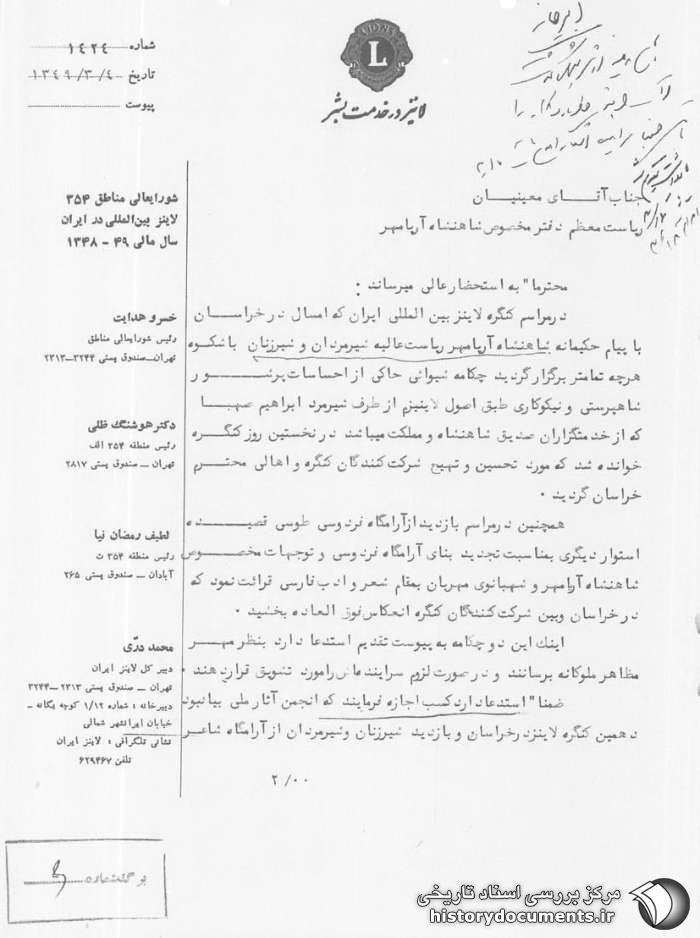 شماره ۱۴۲۴
تاریخ ۱۳۴۹/۳/۴
پیوست
LIONS
L
لاینز در خدمت بشر
جناب آقای معینیان
ریاست معظم دفتر مخصوص شاهنشاه آریامهر
محترما" به استحضار عالی میرساند :
در مراسم کنگره لاینز بین المللی ایران که امسال در خراسان
با پیام حکیمانه شاهنشاه آریامهر ریاست عالیه شیرمردان و شیرزنان باشکوه
هرچه تمامتر برگزار گردید چکامه شیوائی حاکی از احساسات پرشور
شاهپرستی و نیکوکاری طبق اصول لاینیزم از طرف شیرمرد ابراهیم صهبا
که از خدمتگزاران صدیق شاهنشاه و مملکت میباشد در نخستین روز کنگره
خوانده شد که مورد تحسین و تهییج شرکت کنندگان کنگره و اهالی محترم
خراسان گردید ۰
همچنین در مراسم بازدید از آرامگاه فردوسی طوسی قصیده
استوار دیگری بمناسبت تجدید بنای آرامگاه فردوسی و توجهات مخصوص
شاهنشاه آریامهر و شهبانوی مهربان بمقام شعر و ادب فارسی قرائت نمود که
در خراسان وبین شرکت کنندگان کنگره انعکاس فوق العاده بخشید ۰
اینک این دو چکامه به پیوست تقدیم استدعا دارد بنظر مهر
مظاهر ملوکانه برسانند و در صورت لزوم سراینده اش را مورد تشویق قرار دهند ۰
ضمنا" استدعا دارد کسب اجازه فرمایند که انجمن آثار ملی بیادبود
دهمین کنگره لاینز در خراسان و بازدید شیرزنان وشیرمردان از آرامگاه شاعر
۲/۰۰
شورایعالی مناطق ۳۵۴
لاینز بین‌المللی در ایران
سال مالی ۴۹ - ۱۳۴۸
خسرو هدایت
رئیس شورایعالی مناطق
تهران - صندوق پستی ۳۲۴۴-۲۳۱۳
دکتر هوشنگ ظلی
رئیس منطقه ۳۵۴ الف
تهران - صندوق پستی ۲۸۱۷
لطیف رمضان نیا
رئیس منطقه ۳۵۴ ث
آبادان - صندوق پستی ۲۶۵
محمد درّی
دبیر کل لاینز ایران
تهران - صندوق پستی ۲۳۱۳-۳۲۴۴
دبیرخانه : شماره ۱/۱۲ کوچه یگانه -
خیابان ایرانشهر شمالی
نشانی تلگرافی : لاینز ایران
تلفن ۶۲۹۴۶۷
برگ شماره
مرکز بررسی اسناد تاریخی
historydocuments.ir